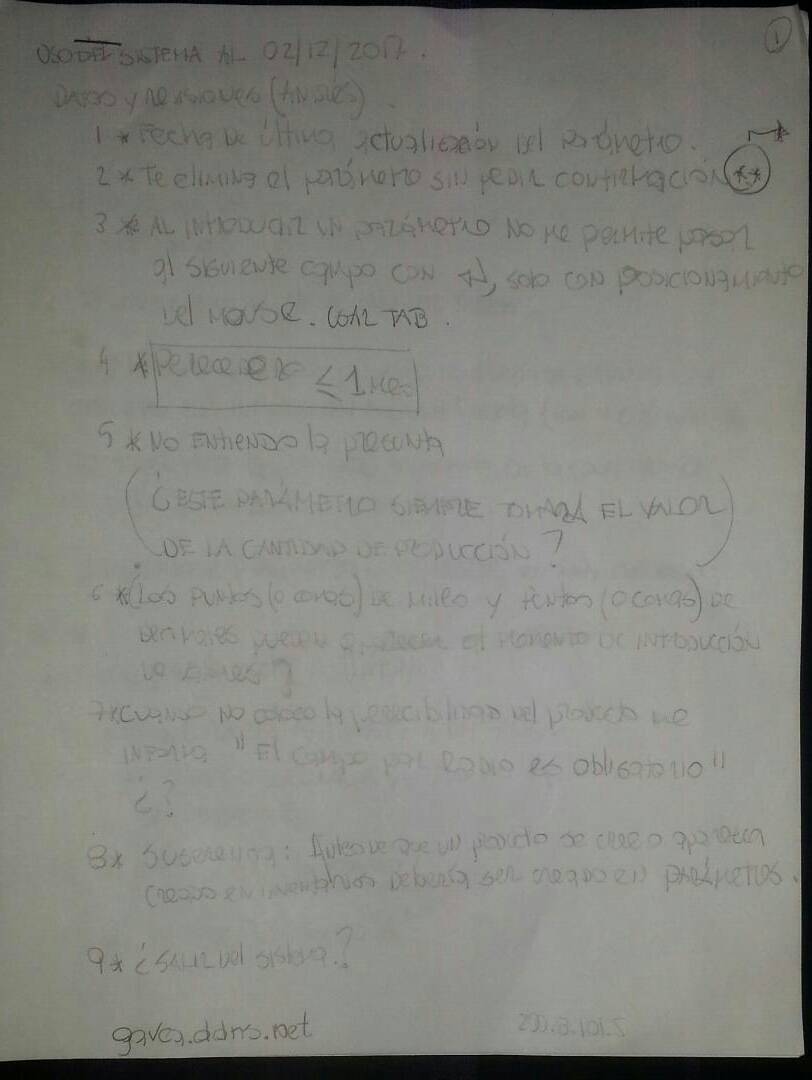 1
USO DEL SISTEMA AL 02/12/2017.
DATOS y REVISIONES (ANGIES).
1 * Fecha de última actualización del parámetro.
2 * Te elimina el parámetro sin pedir confirmación **
3 * AL INTRODUCIR UN parámetro NO me permite pasar
al siguiente campo con ↵, solo con posicionamiento
del mouse. CON TAB.
4 * Perecedero ≤ 1 mes
5 * NO ENTIENDO la pregunta
(¿ESTE PARÁMETRO SIEMPRE TOMARÁ EL VALOR
DE LA CANTIDAD DE PRODUCCIÓN?)
6 * ¿Los puntos (o comas) de miles y puntos (o comas) de
decimales pueden aparecer al momento de INTRODUCCIÓN
de
7 * CUANDO NO coloco la perecibilidad del producto me
"El campo por es obligatorio"
¿?
8 * Sugerencia: Antes de que un producto se cree o aparezca
creado en inventarios debería ser creado en parámetros.
9 * ¿SALIR del sistema?
gavca.ddns.net